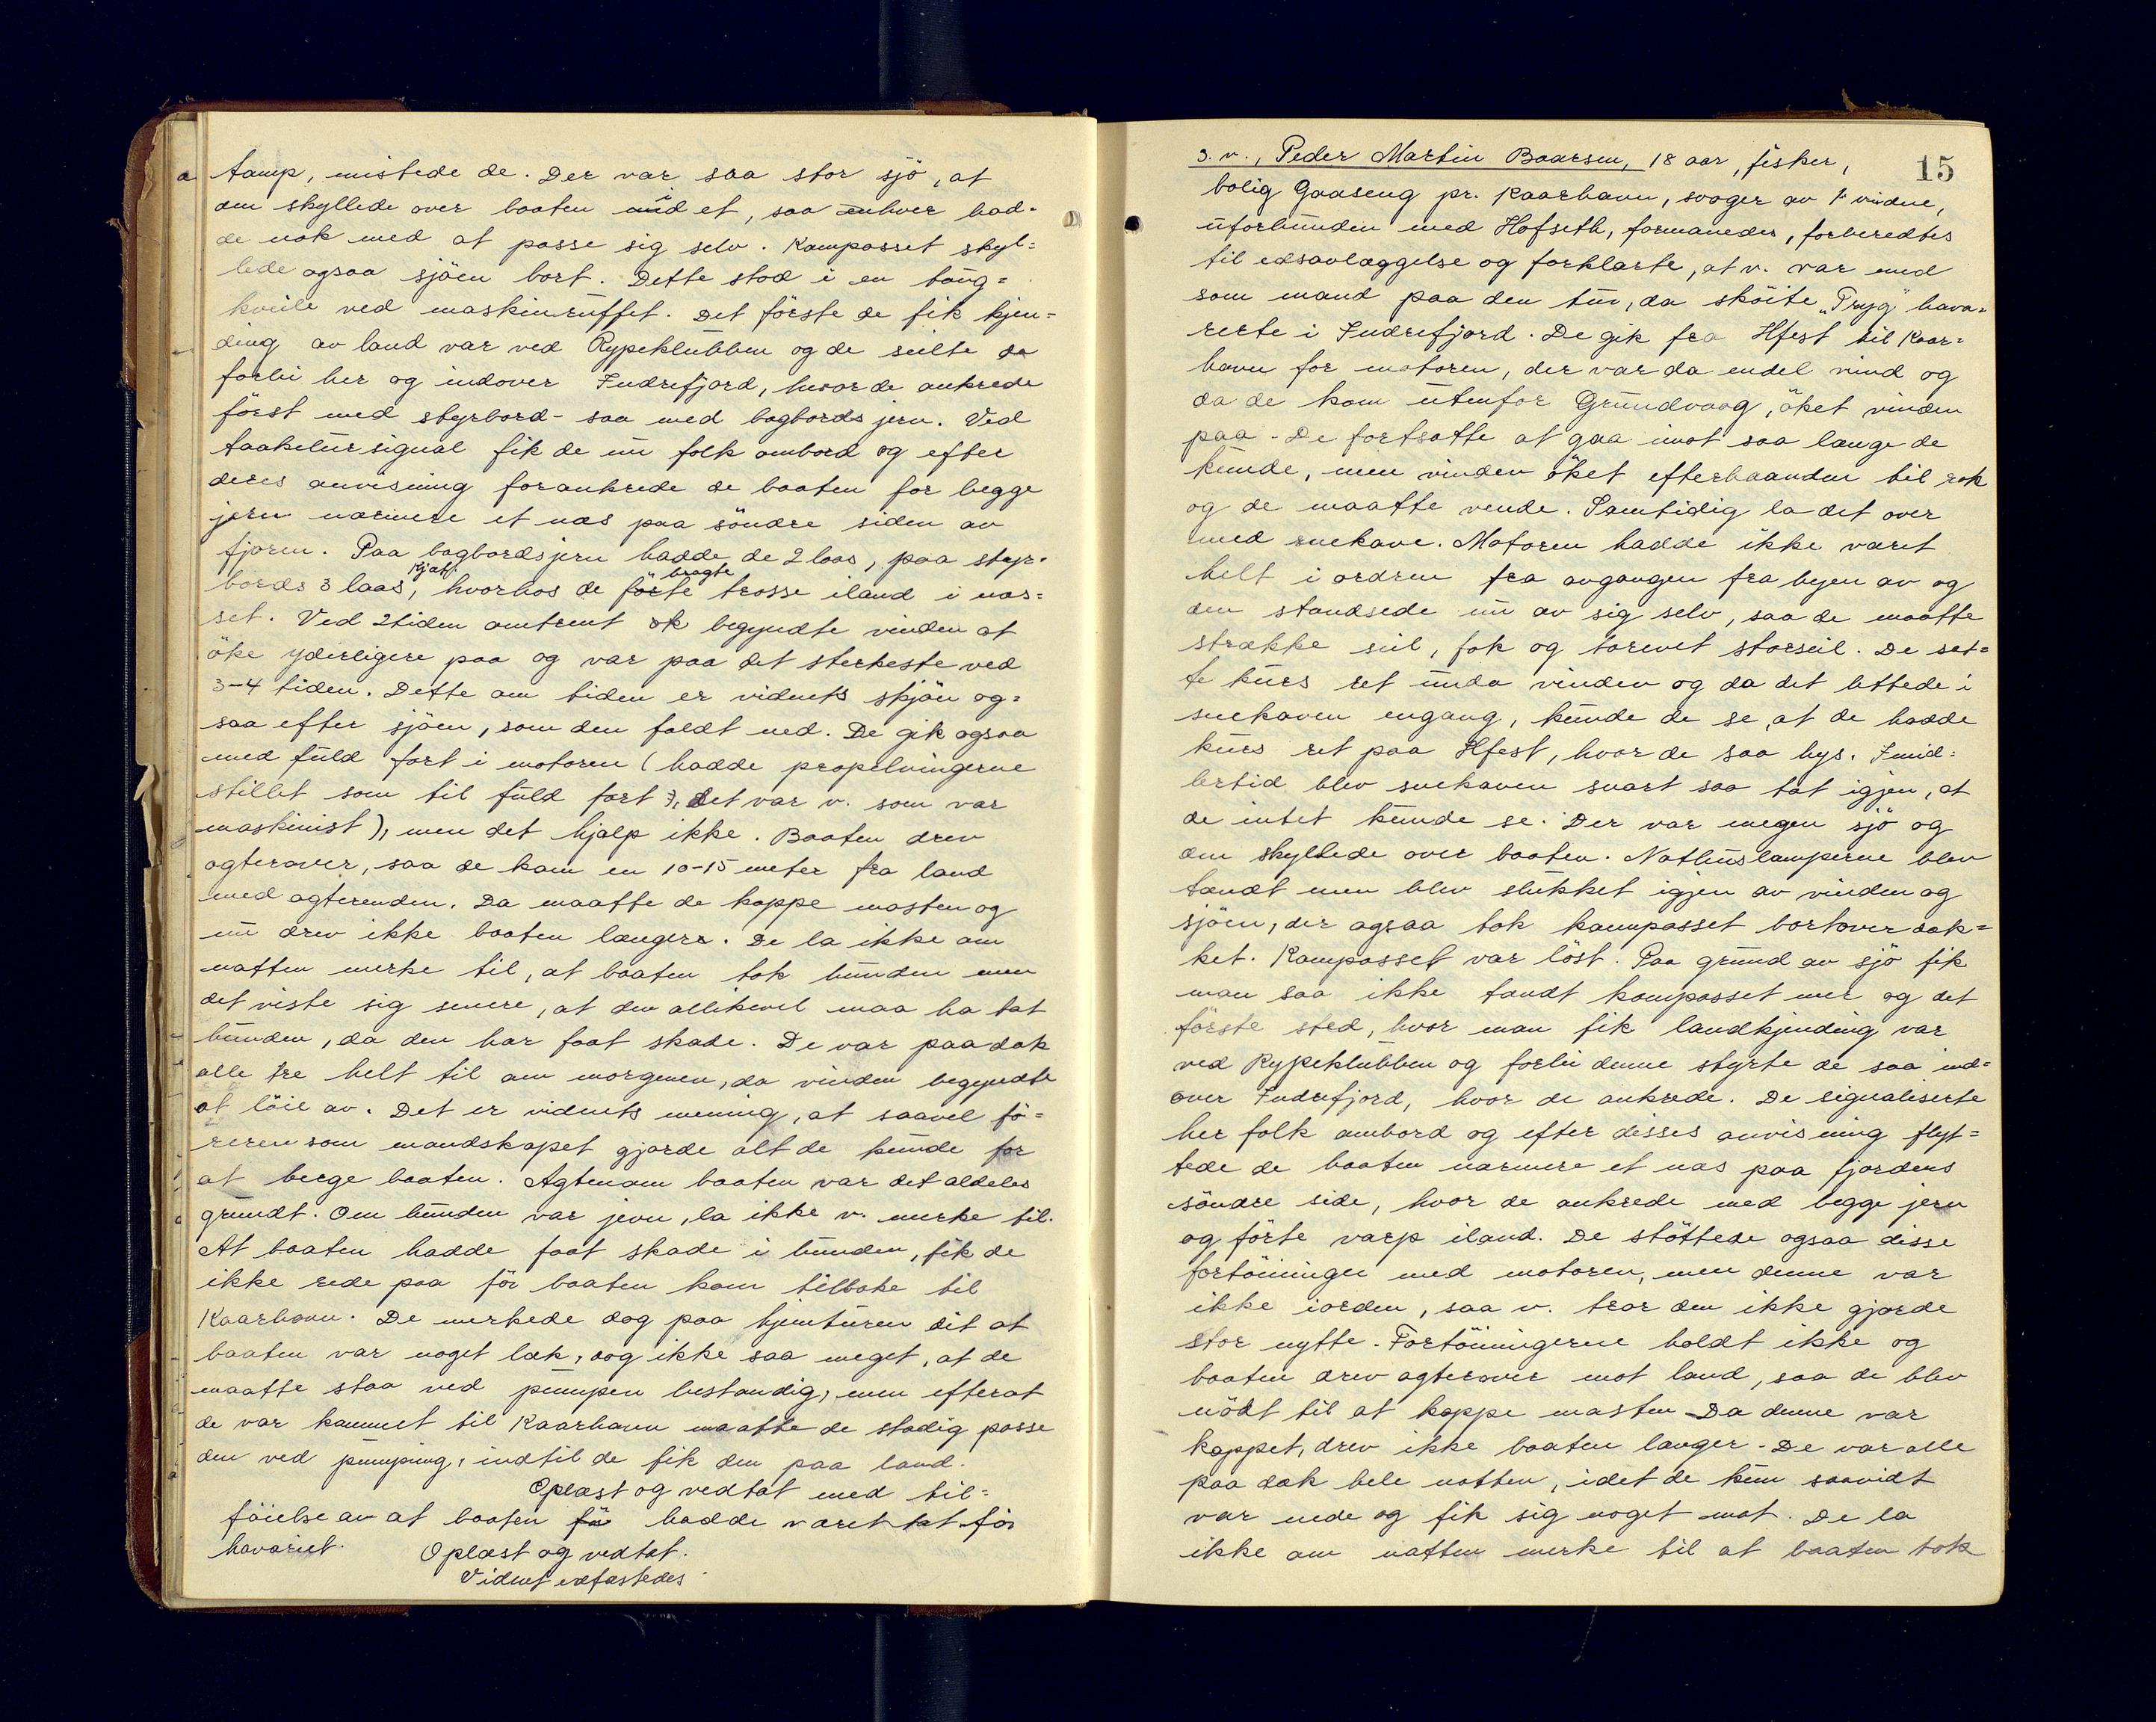 tamp, mistede de. Der var saa stor sjö, at
den skyllede over baaten i et, saa enhver had-
de nok med at passe sig selv. Kompasset skyl=
lede ogsaa sjöen bort. Dette stod i en toug=
kveile ved maskinruffet. Det förste de fik kjen=
ding av land var ved Rypeklubben og de seilte da
forbi her og indover Indrefjord, hvor de ankrede
först med styrbord- saa med bagbords jern. Ved
taakelursignal fik de nu folk ombord og efter
deres anvisning forankrede de baaten for begge
jern nærmere et næs paa söndre siden av
fjoren. Paa bagbordsjern hadde de 2 laas, paa styr-
bords 3 laas kjæt., hvorhos de förte bragte trosse iland i næs=
set. Ved 2tiden omtrent ok begyndte vinden at
öke yderligere paa og var paa det sterkeste ved
3-4 tiden. Dette om tiden er vidnets skjön og=
saa efter sjöen, som den faldt ned. De gik ogsaa
med fuld fart i motoren (hadde propelvingerne
stillet som til fuld fart, det var v. som var
maskinist), men det hjalp ikke. Baaten drev
agterover, saa de kom en 10-15 meter fra land
med agterenden. Da maatte de kappe masten og
nu drev ikke baaten længere. De la ikke om
natten merke til, at baaten tok bunden men
det viste sig senere, at den allikevel maa ha tat
bunden, da den har faat skade. De var paa dæk
alle tre helt til om morgenen, da vinden begyndte
at löie av. Det er vidnets mening, at saavel fö=
reren som mandskapet gjorde alt de kunde for
at berge baaten. Agtenom baaten var det aldeles
grundt. Om bunden var jevn, la ikke v. merke til.
At baaten hadde faat skade i bunden, fik de
ikke rede paa för baaten kom tilbake til
Kaarhavn. De merkede dog paa hjemturen dit at
baaten var noget læk, dog ikke saa meget, at de
maatte staa ved pumpen bestandig, men efterat
de var kommet til Kaarhavn maatte de stadig passe
den ved pumping, indtil de fik den paa land.
Oplæst og vedtat med til=
föielse av at baaten för hadde været tæt för
havariet. Oplæst og vedtat.
Vidnet edfæstedes
3. v., Peder Martin Baarsen, 18 aar, fisker, 15
bolig Gaaseng pr. Kaarhavn, svoger av 1. vidne,
uforbunden med Hofseth, formanedes, forberedtes
til edsavlæggelse og forklarte, at v. var med
som mand paa den tur, da sköite "Tryg" hava=
rerte i Indrefjord. De gik fra Hfest til Kaar=
havn for motoren, der var da endel vind og
da de kom utenfor Grundvaag, öket vinden
paa - De fortsatte at gaa imot saa længe de
kunde, men vinden öket efterhaanden til rok
og de maatte vende. Samtidig la det over
med snekave. Motoren hadde ikke været
helt i ordren fra avgangen fra byen av og
den standsede nu av sig selv, saa de maatte
strække seil, fok og torevet storseil. De set=
te kurs ret unda vinden og da det lettede i
snekaven engang, kunde de se, at de hadde
kurs ret paa Hfest, hvor de saa lys. Imid=
lertid blev snekaven snart saa tæt igjen, at
de intet kunde se. Der var megen sjö og
den skyllede over baaten. Nathuslamperne blev
tændt men blev slukket igjen av vinden og
sjöen, der ogsaa tok kompasset bortover dæk=
ket. Kompasset var löst. Paa grund av sjö fik
man saa ikke tændt kompasset mer og det
förste sted, hvor man fik landkjending var
ved Rypeklubben og forbi denne styrte de saa ind=
over Indrefjord, hvor de ankrede. De signaliserte
her folk ombord og efter disses anvisning flyt=
tede de baaten nærmere et næs paa fjordens
söndre side, hvor de ankrede med begge jern
og förte varp iland. De stöttede ogsaa disse
fortöininger med motoren, men denne var
ikke iorden, saa v. tror den ikke gjorde
stor nytte. Fortöiningerne holdt ikke og
baaten drev agterover mot land, saa de blev
nödt til at kappe masten - Da denne var
kappet, drev ikke baaten længer - De var alle
paa dæk hele natten, idet de kun saavidt
var nede og fik sig noget mat. De la
ikke om natten merke til at baaten tok